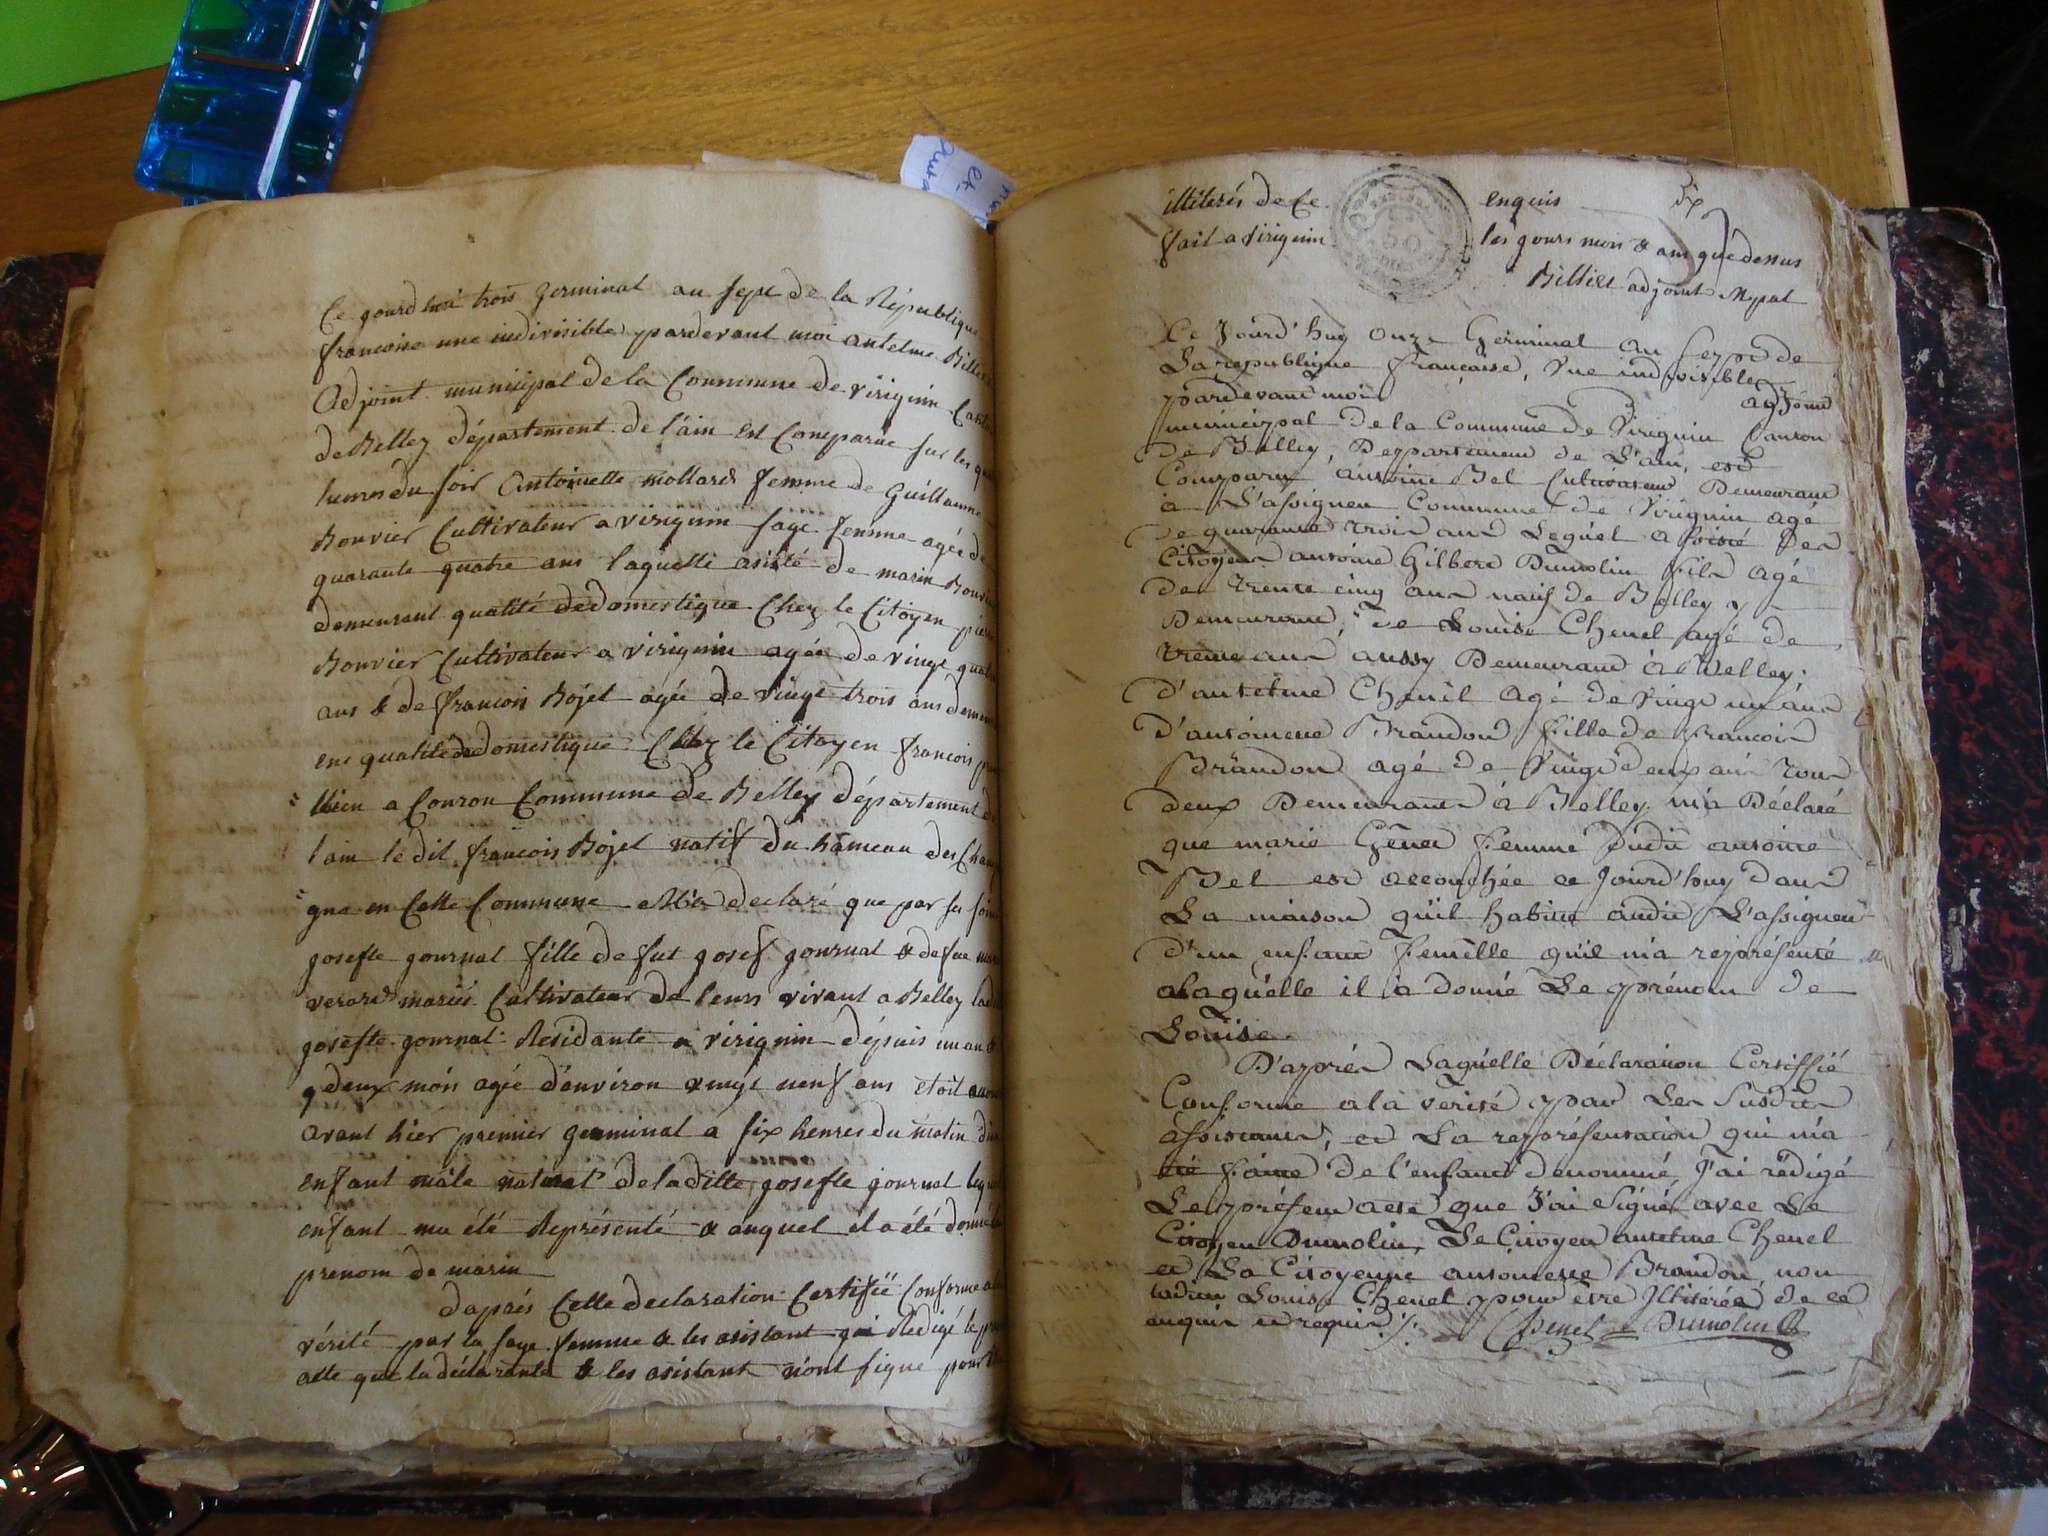 Ce gourdhui trois germinal an sept de la République
francoise une indivisible pardevant moi antelme Billiet
Adjoint municipal de la Commune de virignin Canton
de Belley département de l'ain est Comparüe sur les quatre
heures du soir Antoinette mollard femme de Guillaume
Bouvier Cultivateur a virignin sage femme agée de
quarante quatre ans laquelle asisté de marin Bouvier
demeurant qualité de domestique Chez le Citoyen pierre
Bouvier Cultivateur a virignin agée de vingt quatre
ans & de francois Bojet agée de vingt trois ans
en qualité de domestique Chez le Citoyen francois
a Couron Commune de Belley département de
l'ain le dit francois Bojet natif du hameau des
gne en Cette Commune M'a declaré que par ses soins
gosefte gournal fille de fut gosef gournal & de fue
verard mariés Cultivateur de leurs vivant a Belley
gosefte gournal Residante a virignin dépuis un an &
deux mois agée d'environ vingt neuf ans etoit
avant hier premier germinal a six heures du matin
enfant mâle naturel de la ditte gosefte gournal lequel
enfant ma été Représenté & auquel il a été donné le
prenom de marin
d'aprés Cette declaration Certifiée Conforme a la
vérité par la sage femme & les asistant gai Redigé le
atte que la déclarante & les asistant n'ont signe pour
illiterés de Ce enquis
50
fait a virignin les gours mois & ans que dessus
Billiet adjoint Mpal
Ce Jourd'huy onze Germinal an sept de
La republique française, Une indivisible
pardevant moi adjoint
municipal de la Commune de Virignin Canton
de Belley, Departement de L'ain, est
Comparu antoine Bel Cultivateur Demeurant
à L'assignen Commune de Virignin agé
de quarante trois ans Lequel assisté Des
Citoyens antoine Gilbert Dumolin fils agé
de trente cinq ans natif de Belley y
Demeurant, de Louise Chenel agé de
trente ans aussy Demeurant à Belley,
d'antelme Chenel agé de vingt un ans
d'antoinette Brandon fille de francois
Brandon agé de vingt deux ans tous
deux Demeurants à Belley, m'a Déclaré
que marie Genet femme dudit antoine
Bel est accouchée ce Jourd'huy dans
La maison qu'il habite audit L'assignen
d'un enfant femelle qu'il m'a représenté
alaquelle il a donné Le prénom de
Louise.
D'aprés Laquelle Déclaration Certiffié
Conforme ala verité par Les susdits
assistants, et La représentation qui m'a
été faite de l'enfant denommé J'ai rédigé
Le présent acte que J'ai signé avec Le
Citoyen Dumolin, Le Citoyen antelme Chenel
et La Citoyenne antoinette Brandon non
ladite Louise Chenel pour etre Illiterée de ce
enquis et requis ./.
Chenel Dumolin